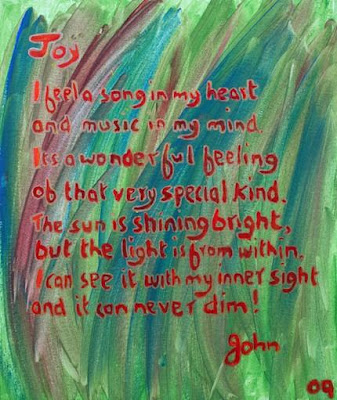 Joy
I feel a song in my heart
and music in my mind.
Its a wonderful feeling
of that very special kind.
The sun is shining bright,
but the light is from within.
I can see it with my inner sight
and it can never dim!
John
09